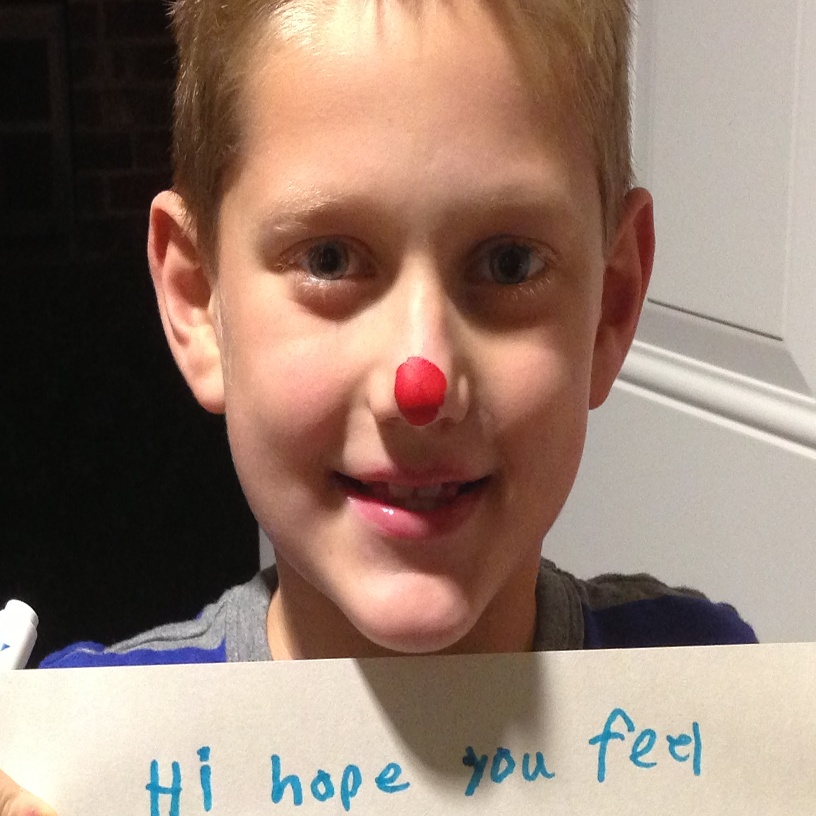 Hi hope you feel